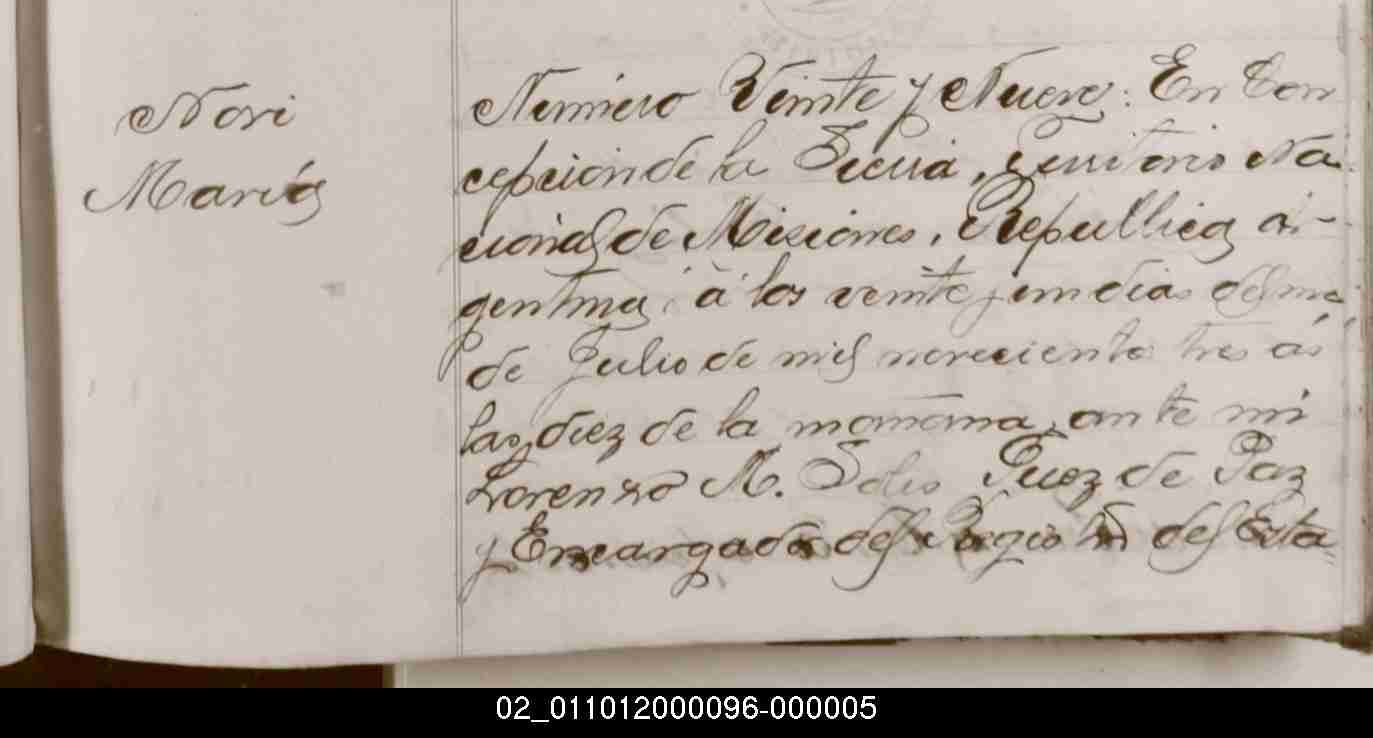 Nori
Maria
Numero Veinte y Nueve: En Con
cepcion de la Sierra, Territorio Na
cional de Misiones, Republica Ar-
gentina, à los veinte y un dias del mes
de Julio de mil novecientos tres á
las diez de la mañana, ante mi
Lorenzo M. Solis Juez de Paz
y Encargado del Registro del Esta
02_011012000096-000005